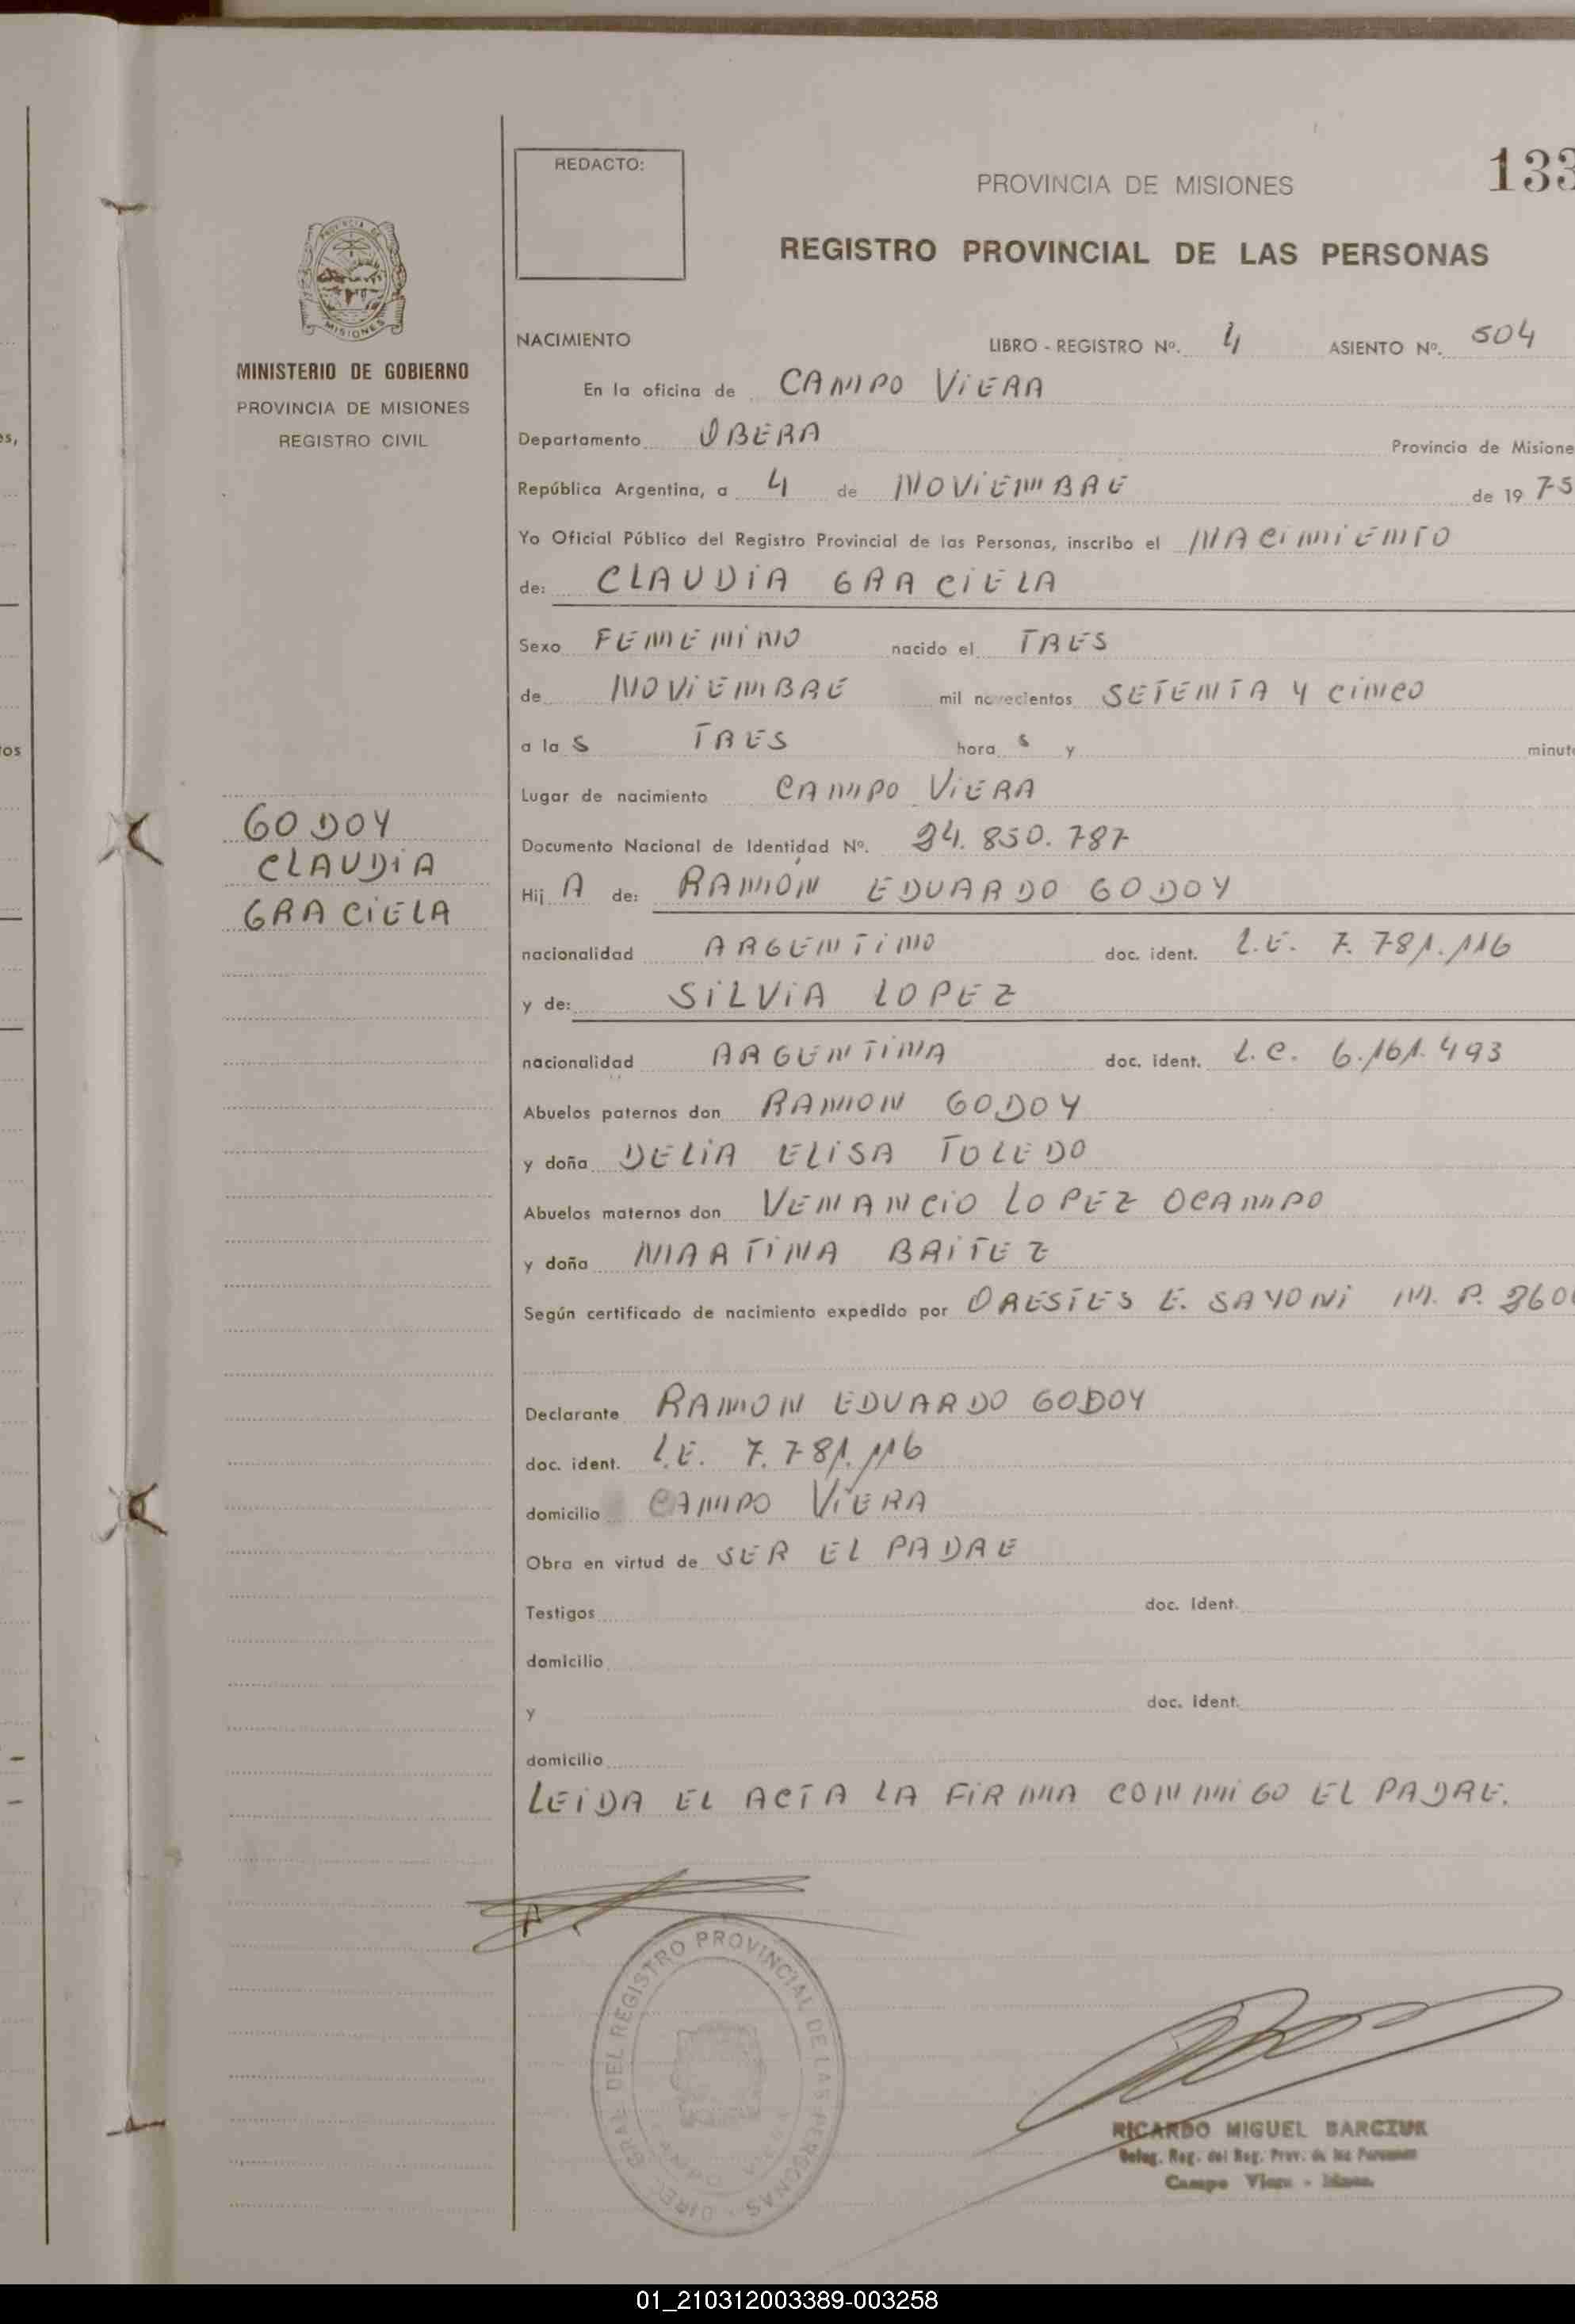 REDACTO:
PROVINCIA DE MISIONES
133
REGISTRO PROVINCIAL DE LAS PERSONAS
PROVINCIA DE
MISIONES
MINISTERIO DE GOBIERNO
PROVINCIA DE MISIONES
REGISTRO CIVIL
NACIMIENTO LIBRO - REGISTRO Nº. 4 ASIENTO Nº. 504
En la oficina de CAMPO VIERA
Departamento OBERA Provincia de Misione
República Argentina, a 4 de NOVIEMBRE de 19 75
Yo Oficial Público del Registro Provincial de las Personas, inscribo el NACIMIENTO
de: CLAUDIA GRACIELA
Sexo FEMENINO nacido el TRES
de NOVIEMBRE mil novecientos SETENTA Y CINCO
a la S TRES hora s y minut
Lugar de nacimiento CAMPO VIERA
Documento Nacional de Identidad Nº. 24.850.787
Hij A de: RAMÓN EDUARDO GODOY
nacionalidad ARGENTINO doc. ident. L.E. 7.781.116
y de: SILVIA LOPEZ
nacionalidad ARGENTINA doc. ident. L.C. 6.161.493
Abuelos paternos don RAMON GODOY
y doña DELIA ELISA TOLEDO
Abuelos maternos don VENANCIO LOPEZ OCAMPO
y doña MARTINA BAITEZ
Según certificado de nacimiento expedido por ORESTES E. SAYONI M.P.
Declarante RAMON EDUARDO GODOY
doc. ident. L.E. 7.781.116
domicilio CAMPO VIERA
Obra en virtud de SER EL PADRE
Testigos doc. Ident.
domicilio
y doc. ident.
domicilio
LEIDA EL ACTA LA FIRMA CONMIGO EL PADRE.
GODOY
CLAUDIA
GRACIELA
es,
tos
DIREC. GRAL. DEL REGISTRO PROVINCIAL DE LAS PERSONAS
CAMPO VIERA
RICARDO MIGUEL BARCZUK
Deleg. Reg. del Reg. Prov. de las Personas
Campo Viera - Mnes.
01_210312003389-003258